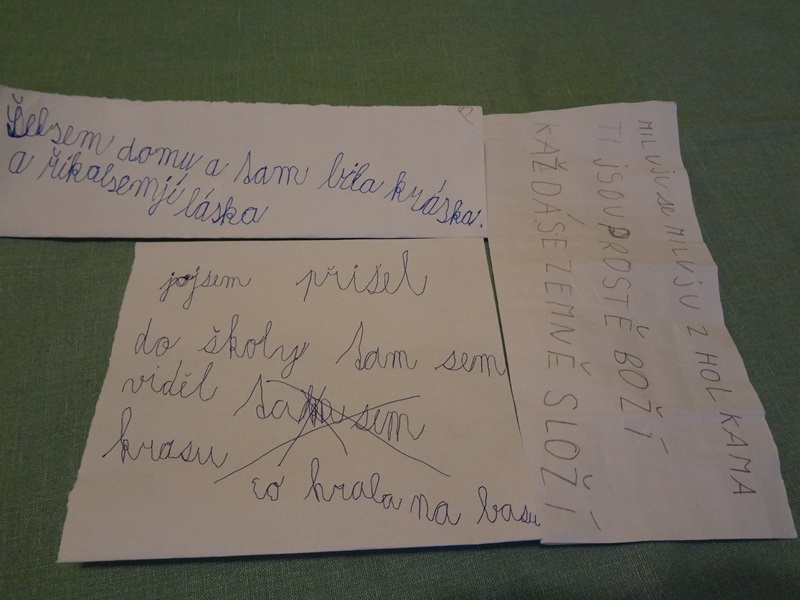 Šel sem domu a tam bila kráska.
a řikalsemjí láska
jojsem přišel
do školy tam sem
viděl tam sem
krasu
co hrala na basu
MILUJU SE MILUJU Z HOLKAMA
TI JSOU PROSTĚ BOŽÍ
KAŽDÁ SE ZEMNĚ SLOŽÍ